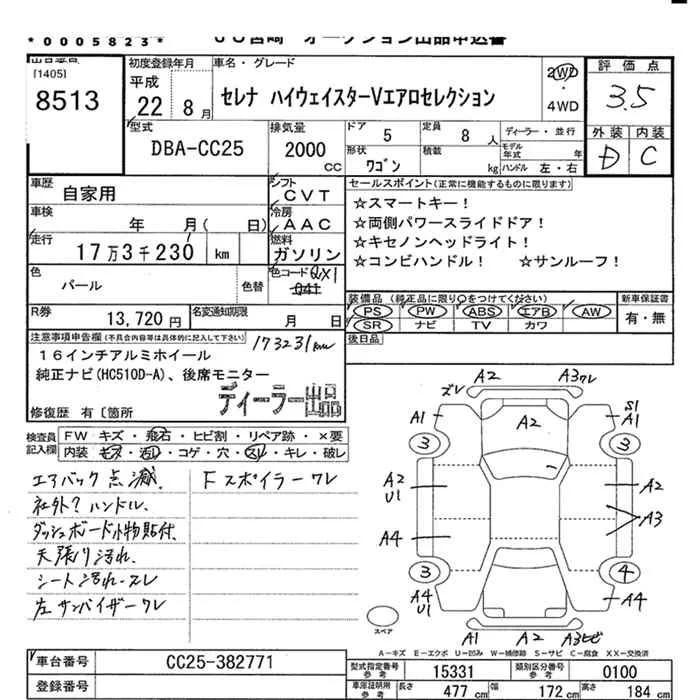 *0005823*
UU宮崎 オークション出品申込書
出品番号
[1405]
8513
初度登録年月
平成
22 8月
車名・グレード
セレナ ハイウェイスターVエアロセレクション
2WD
・
4WD
評価点
3.5
外装 内装
D C
型式
DBA-CC25
排気量
2000
CC
ドア 5
定員 8人
ディーラー・並行
形状
ワゴン
積載
kg
モデル年式 年
ハンドル 左・右
車歴
自家用
シフト
CVT
車検
年 月( 日)
冷房
AAC
走行
17万3千230 km
燃料
ガソリン
色
パール
色替
色コード QX1
041
R券
13,720円
名変通知期限
月 日
セールスポイント(正常に機能するものに限ります)
☆スマートキー!
☆両側パワースライドドア!
☆キセノンヘッドライト!
☆コンビハンドル! ☆サンルーフ!
装備品(純正品に限り○をつけてください)
PS PW ABS エアB AW
SR ナビ TV カワ
新車保証書
有・無
後日品
注意事項申告欄(不具合内容等は具体的に記入して下さい)
173231km
16インチアルミホイール
純正ナビ(HC510D-A)、後席モニター
ディーラー出品
修復歴 有〔箇所
検査員
記入欄
FW キズ・飛石・ヒビ割・リペア跡・×要
内装 キズ・汚レ・コゲ・穴・スレ・キレ・破レ
エアバック点滅.
社外?ハンドル.
ダッシュボード小物貼付.
天張り汚れ.
シート汚れ.スレ
左サンバイザーワレ
Fスポイラーワレ
ズレ A2 A3ワレ
A1 A2 S1
A1
3 3
A2
U1
A2
A3
A4
3 4
A4
U1
A4
スペア
A1 A2 A3ヒビ
A－キズ E－エクボ U－凹み W－補修跡 S－サビ C－腐食 XX－交換済
車台番号
CC25-382771
登録番号
型式指定番号
参考
15331
類別区分番号
参考
0100
車庫証明用
参考
長さ 477cm
幅 172cm
高さ 184cm